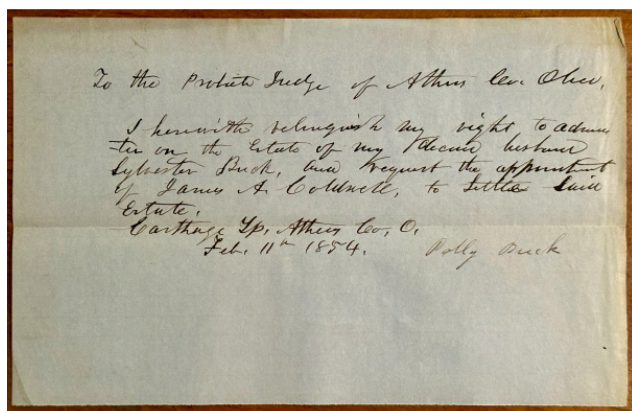 To the Probate Judge of Athens Co. Ohio,
I herewith relinquish my right to admins
ter on the Estate of my deceasd husband
Sylvester Buck, and request the appointment
of James A. Coldwell, to settle said
Estate.
Carthage Tp. Athens Co, O.
Feb. 11th 1854. Polly Buck